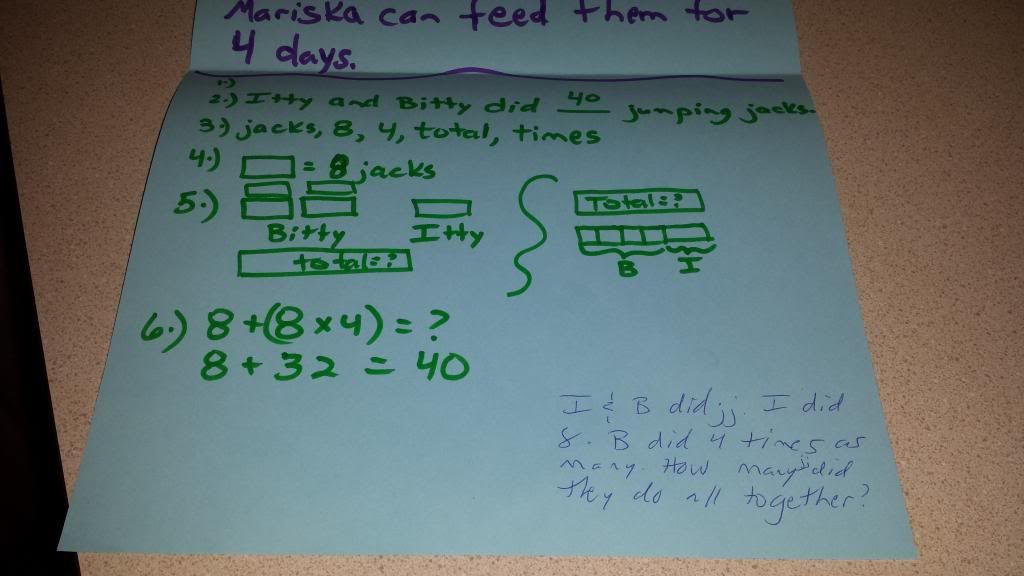 Mariska can feed them for
4 days.
1.)
2.) Itty and Bitty did 40 jumping jacks.
3.) jacks, 8, 4, total, times
4.) = 8 jacks
5.)
Bitty Itty
total=?
Total=?
B I
6.) 8 + (8 x 4) = ?
8 + 32 = 40
I & B did jj. I did
8. B did 4 times as
many. How many jj did
they do all together?